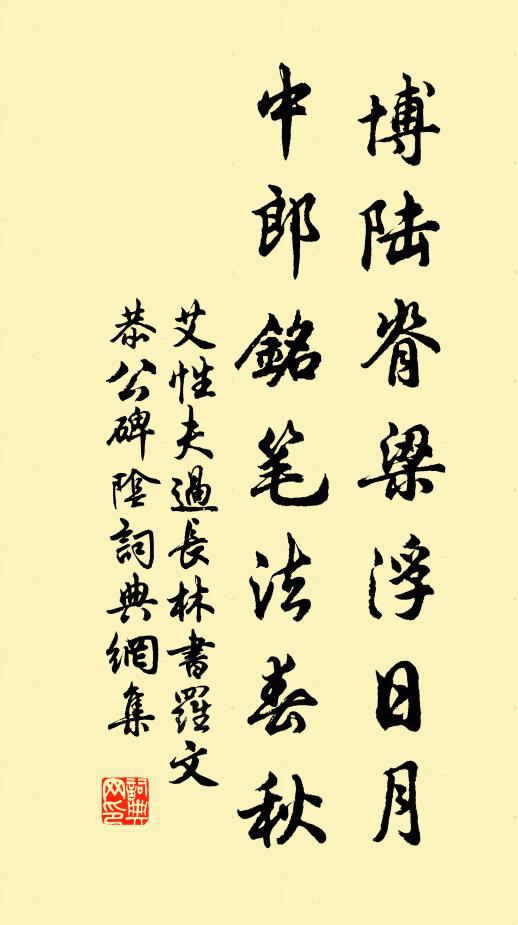 博陆脊梁浮日月
中郎銘笔法春秋
艾性夫過長林書羅文
恭公碑陰詞典網集
詞典网印